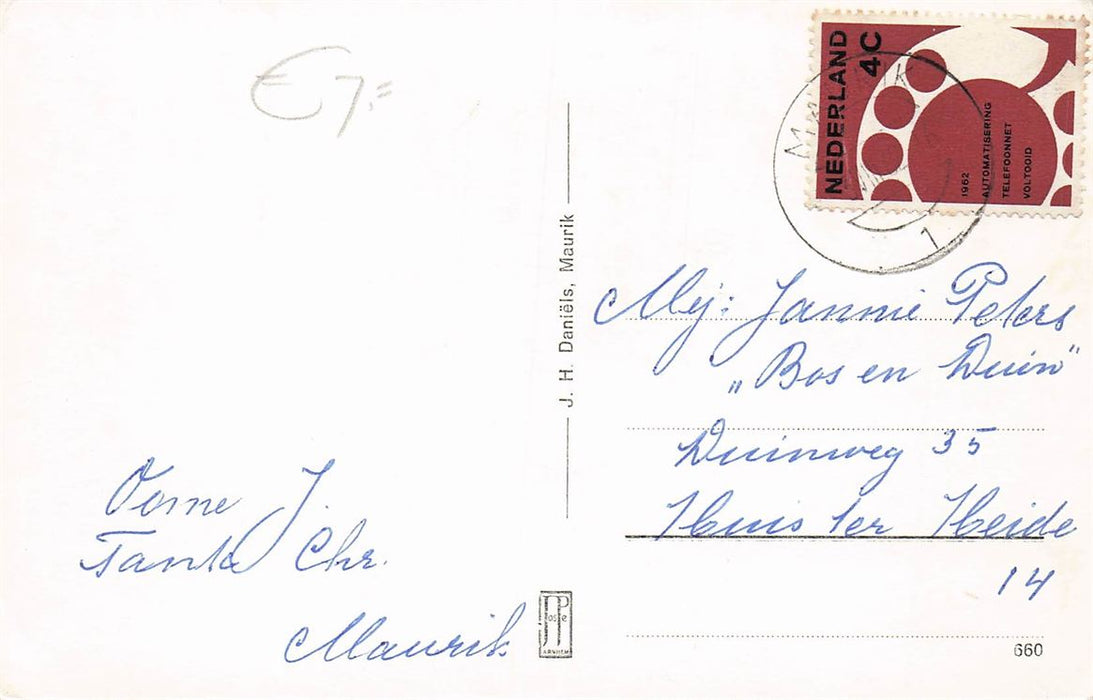 € 7,=
NEDERLAND
4C
1962
AUTOMATISERING
TELEFOONNET
VOLTOOID
MAURIK
1
J. H. Daniëls, Maurik
Mej: Jannie Peters
„Bos en Duin"
Duinweg 35
Huis ter Heide
14
Oome J.
Tante Chr.
Maurik
JP
ARNHEM
660